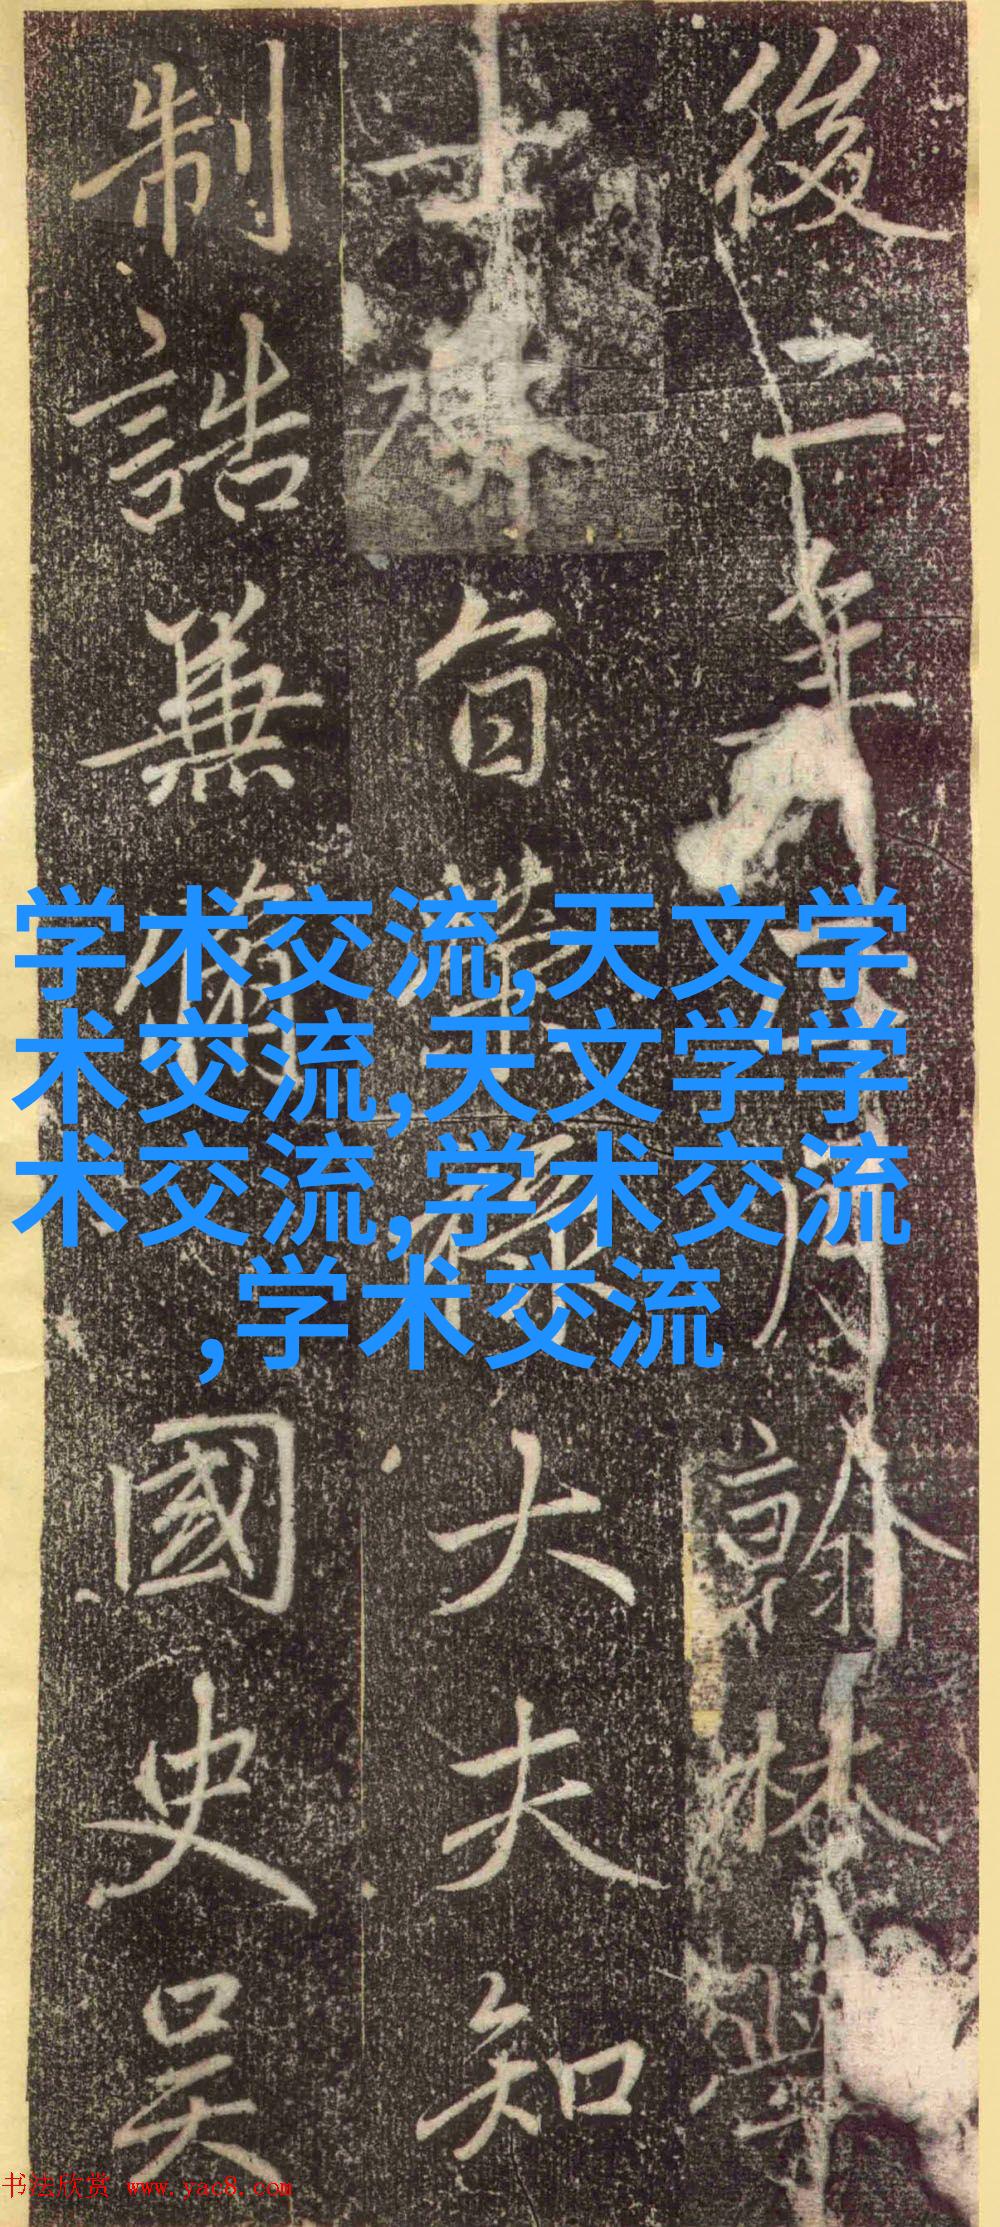 後二年月翰林學
士旨祿大夫知
制誥兼脩國史吳
学术交流,天文学
术交流,天文学学
术交流,学术交流
,学术交流
书法欣赏 www.yac8.com